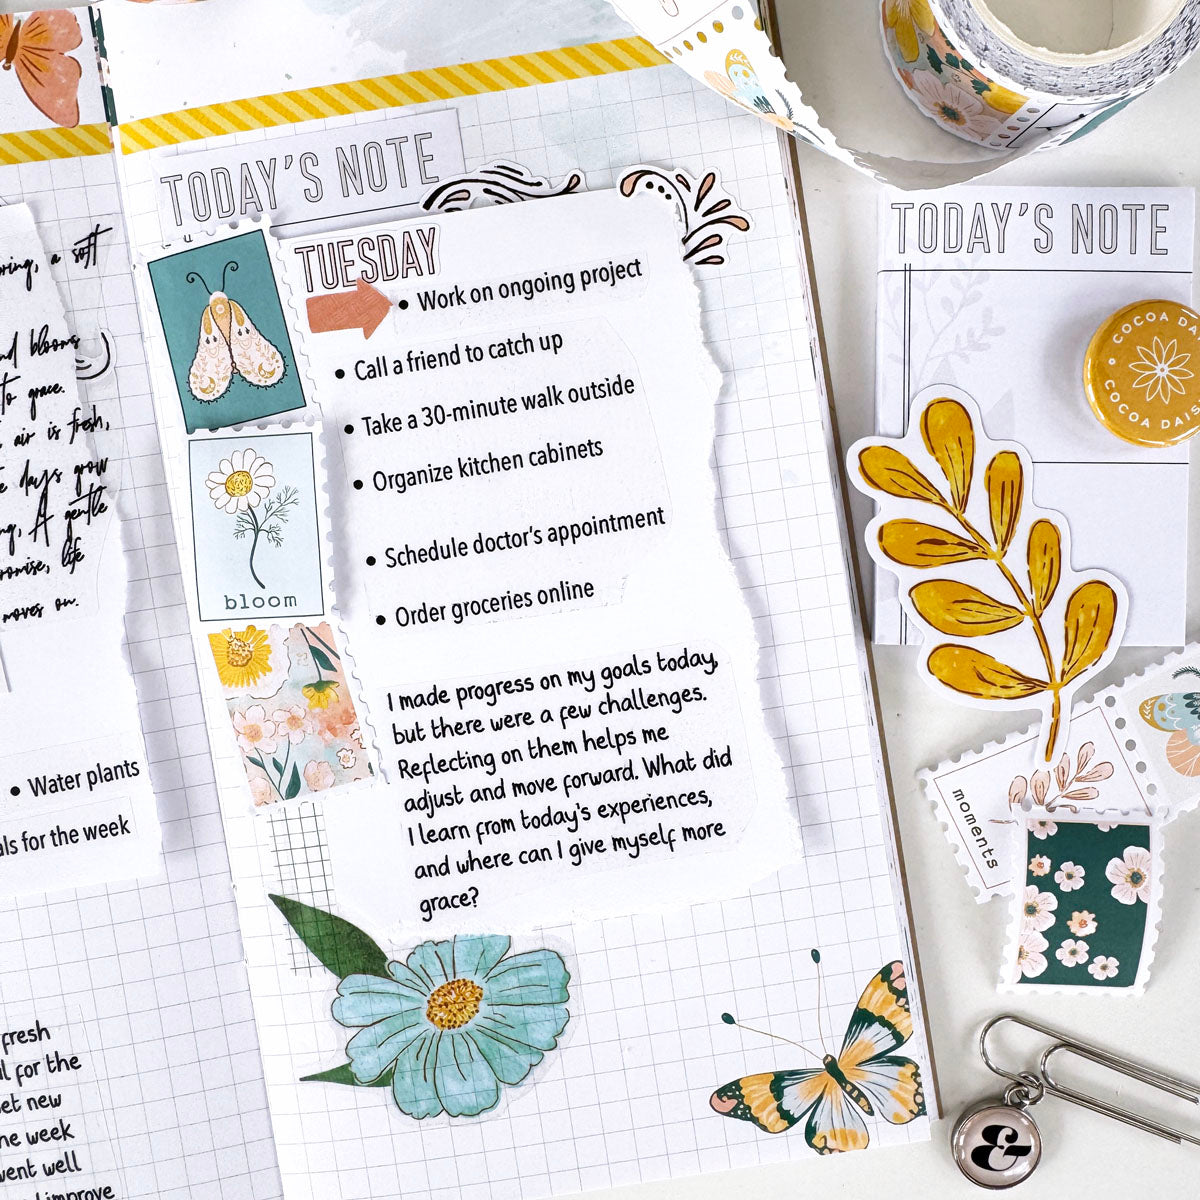 TODAY'S NOTE
TUESDAY
• Work on ongoing project
• Call a friend to catch up
• Take a 30-minute walk outside
• Organize kitchen cabinets
• Schedule doctor's appointment
• Order groceries online
I made progress on my goals today,
but there were a few challenges.
Reflecting on them helps me
adjust and move forward. What did
I learn from today's experiences,
and where can I give myself more
grace?
bloom
a soft
blooms
to grace.
air is fresh,
days grow
A gentle
life
moves on.
• Water plants
for the week
fresh
for the
new
week
went well
improve
TODAY'S NOTE
COCOA DAISY
COCOA
moments
&